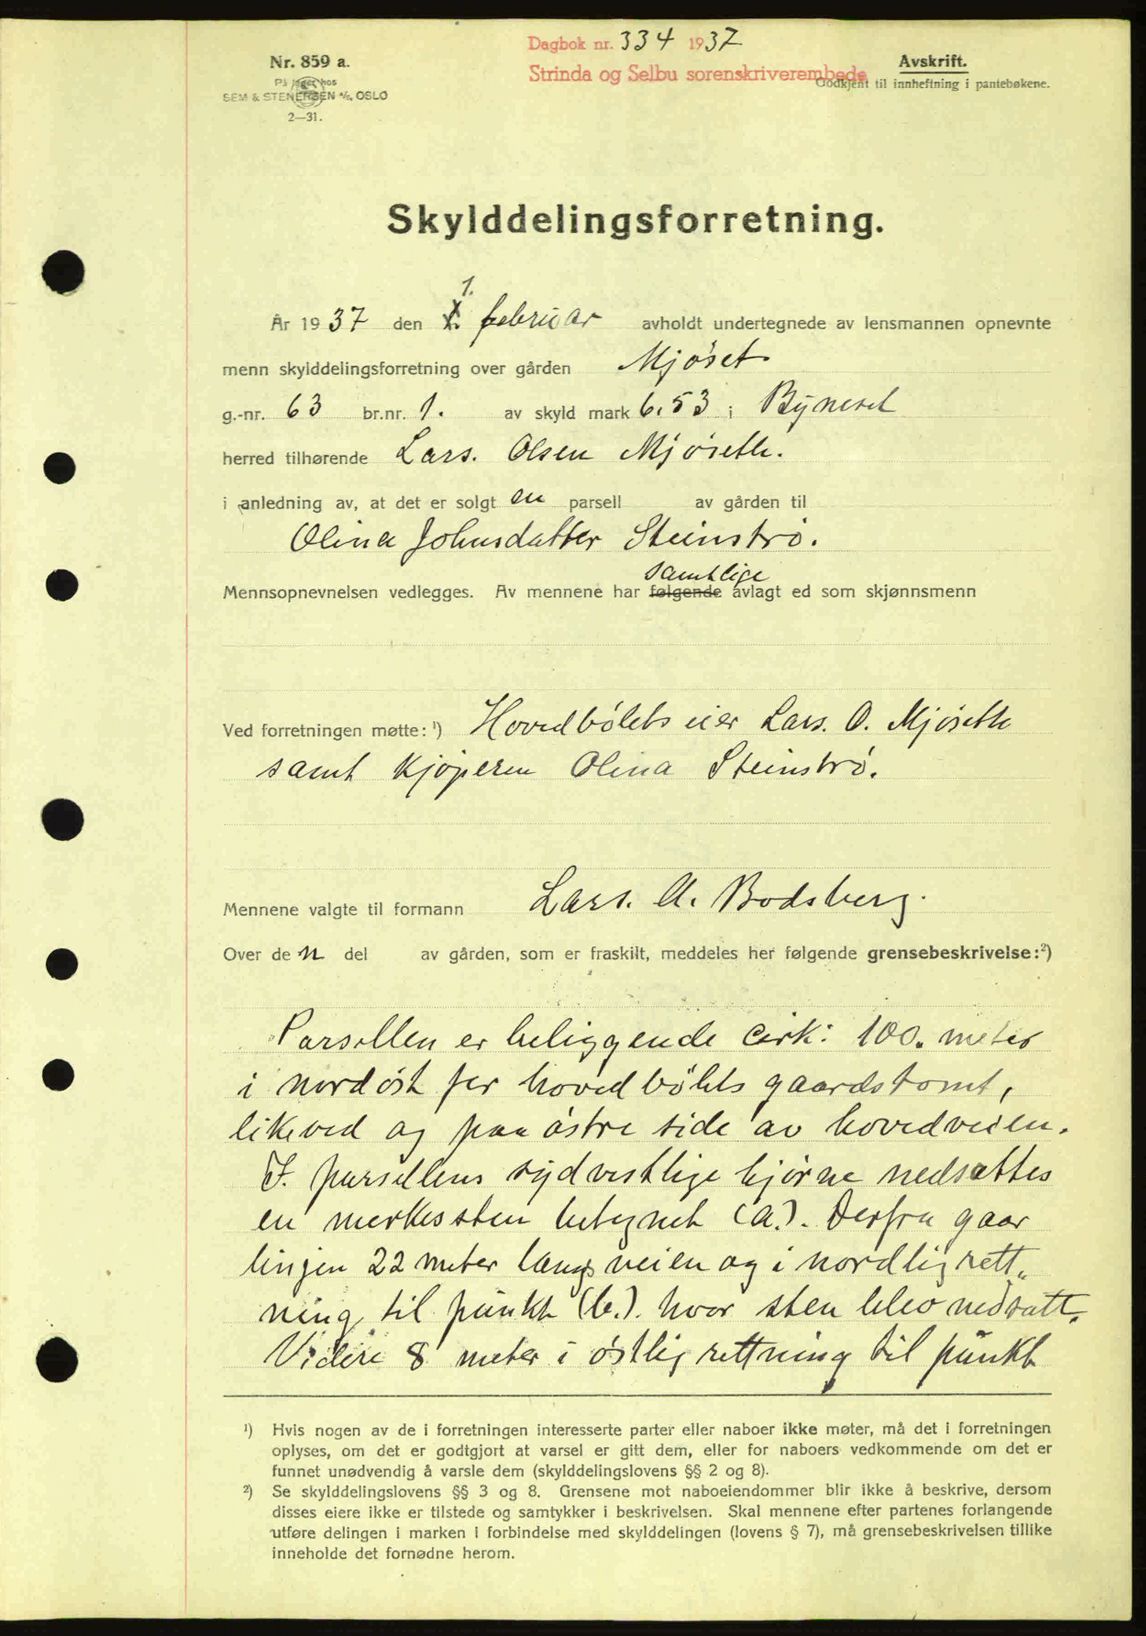 Dagbok nr. 334 1937
Strinda og Selbu sorenskriverembede
Nr. 859 a.
På lager hos
SEM & STENERSEN A/S, OSLO
2—31.
Avskrift.
Godkjent til innheftning i pantebøkene.
Skylddelingsforretning.
1.
År 1937 den februar avholdt undertegnede av lensmannen opnevnte
menn skylddelingsforretning over gården Mjøset
g.-nr. 63 br.nr. 1. av skyld mark 6,53 i Byneset
herred tilhørende Lars. Olsen Mjøseth.
i anledning av, at det er solgt en parsell av gården til
Olina Johnsdatter Steinstrø.
samtlige
Mennsopnevnelsen vedlegges. Av mennene har følgende avlagt ed som skjønnsmenn
Ved forretningen møtte: ¹) Hovedbølets eier Lars. O. Mjøseth
samt kjøperen Olina Steinstrø.
Mennene valgte til formann Lars. A. Bodsberg.
Over den del av gården, som er fraskilt, meddeles her følgende grensebeskrivelse:²)
Parsellen er beliggende cirk: 100. meter
i nordøst for hovedbølets gaardstomt,
likeved og paa østre side av hovedveien.
I. parsellens sydvestlige hjørne nedsattes
en merkessten betegnet (a.). Derfra gaar
linjen 22 meter langs veien og i nordlig rett„
ning til punkt (b.). hvor sten blev nedsatt.
Videre 8 meter i østlig rettning til punkt
¹) Hvis nogen av de i forretningen interesserte parter eller naboer ikke møter, må det i forretningen
oplyses, om det er godtgjort at varsel er gitt dem, eller for naboers vedkommende om det er
funnet unødvendig å varsle dem (skylddelingslovens §§ 2 og 8).
²) Se skylddelingslovens §§ 3 og 8. Grensene mot naboeiendommer blir ikke å beskrive, dersom
disses eiere ikke er tilstede og samtykker i beskrivelsen. Skal mennene efter partenes forlangende
utføre delingen i marken i forbindelse med skylddelingen (lovens § 7), må grensebeskrivelsen tillike
inneholde det fornødne herom.